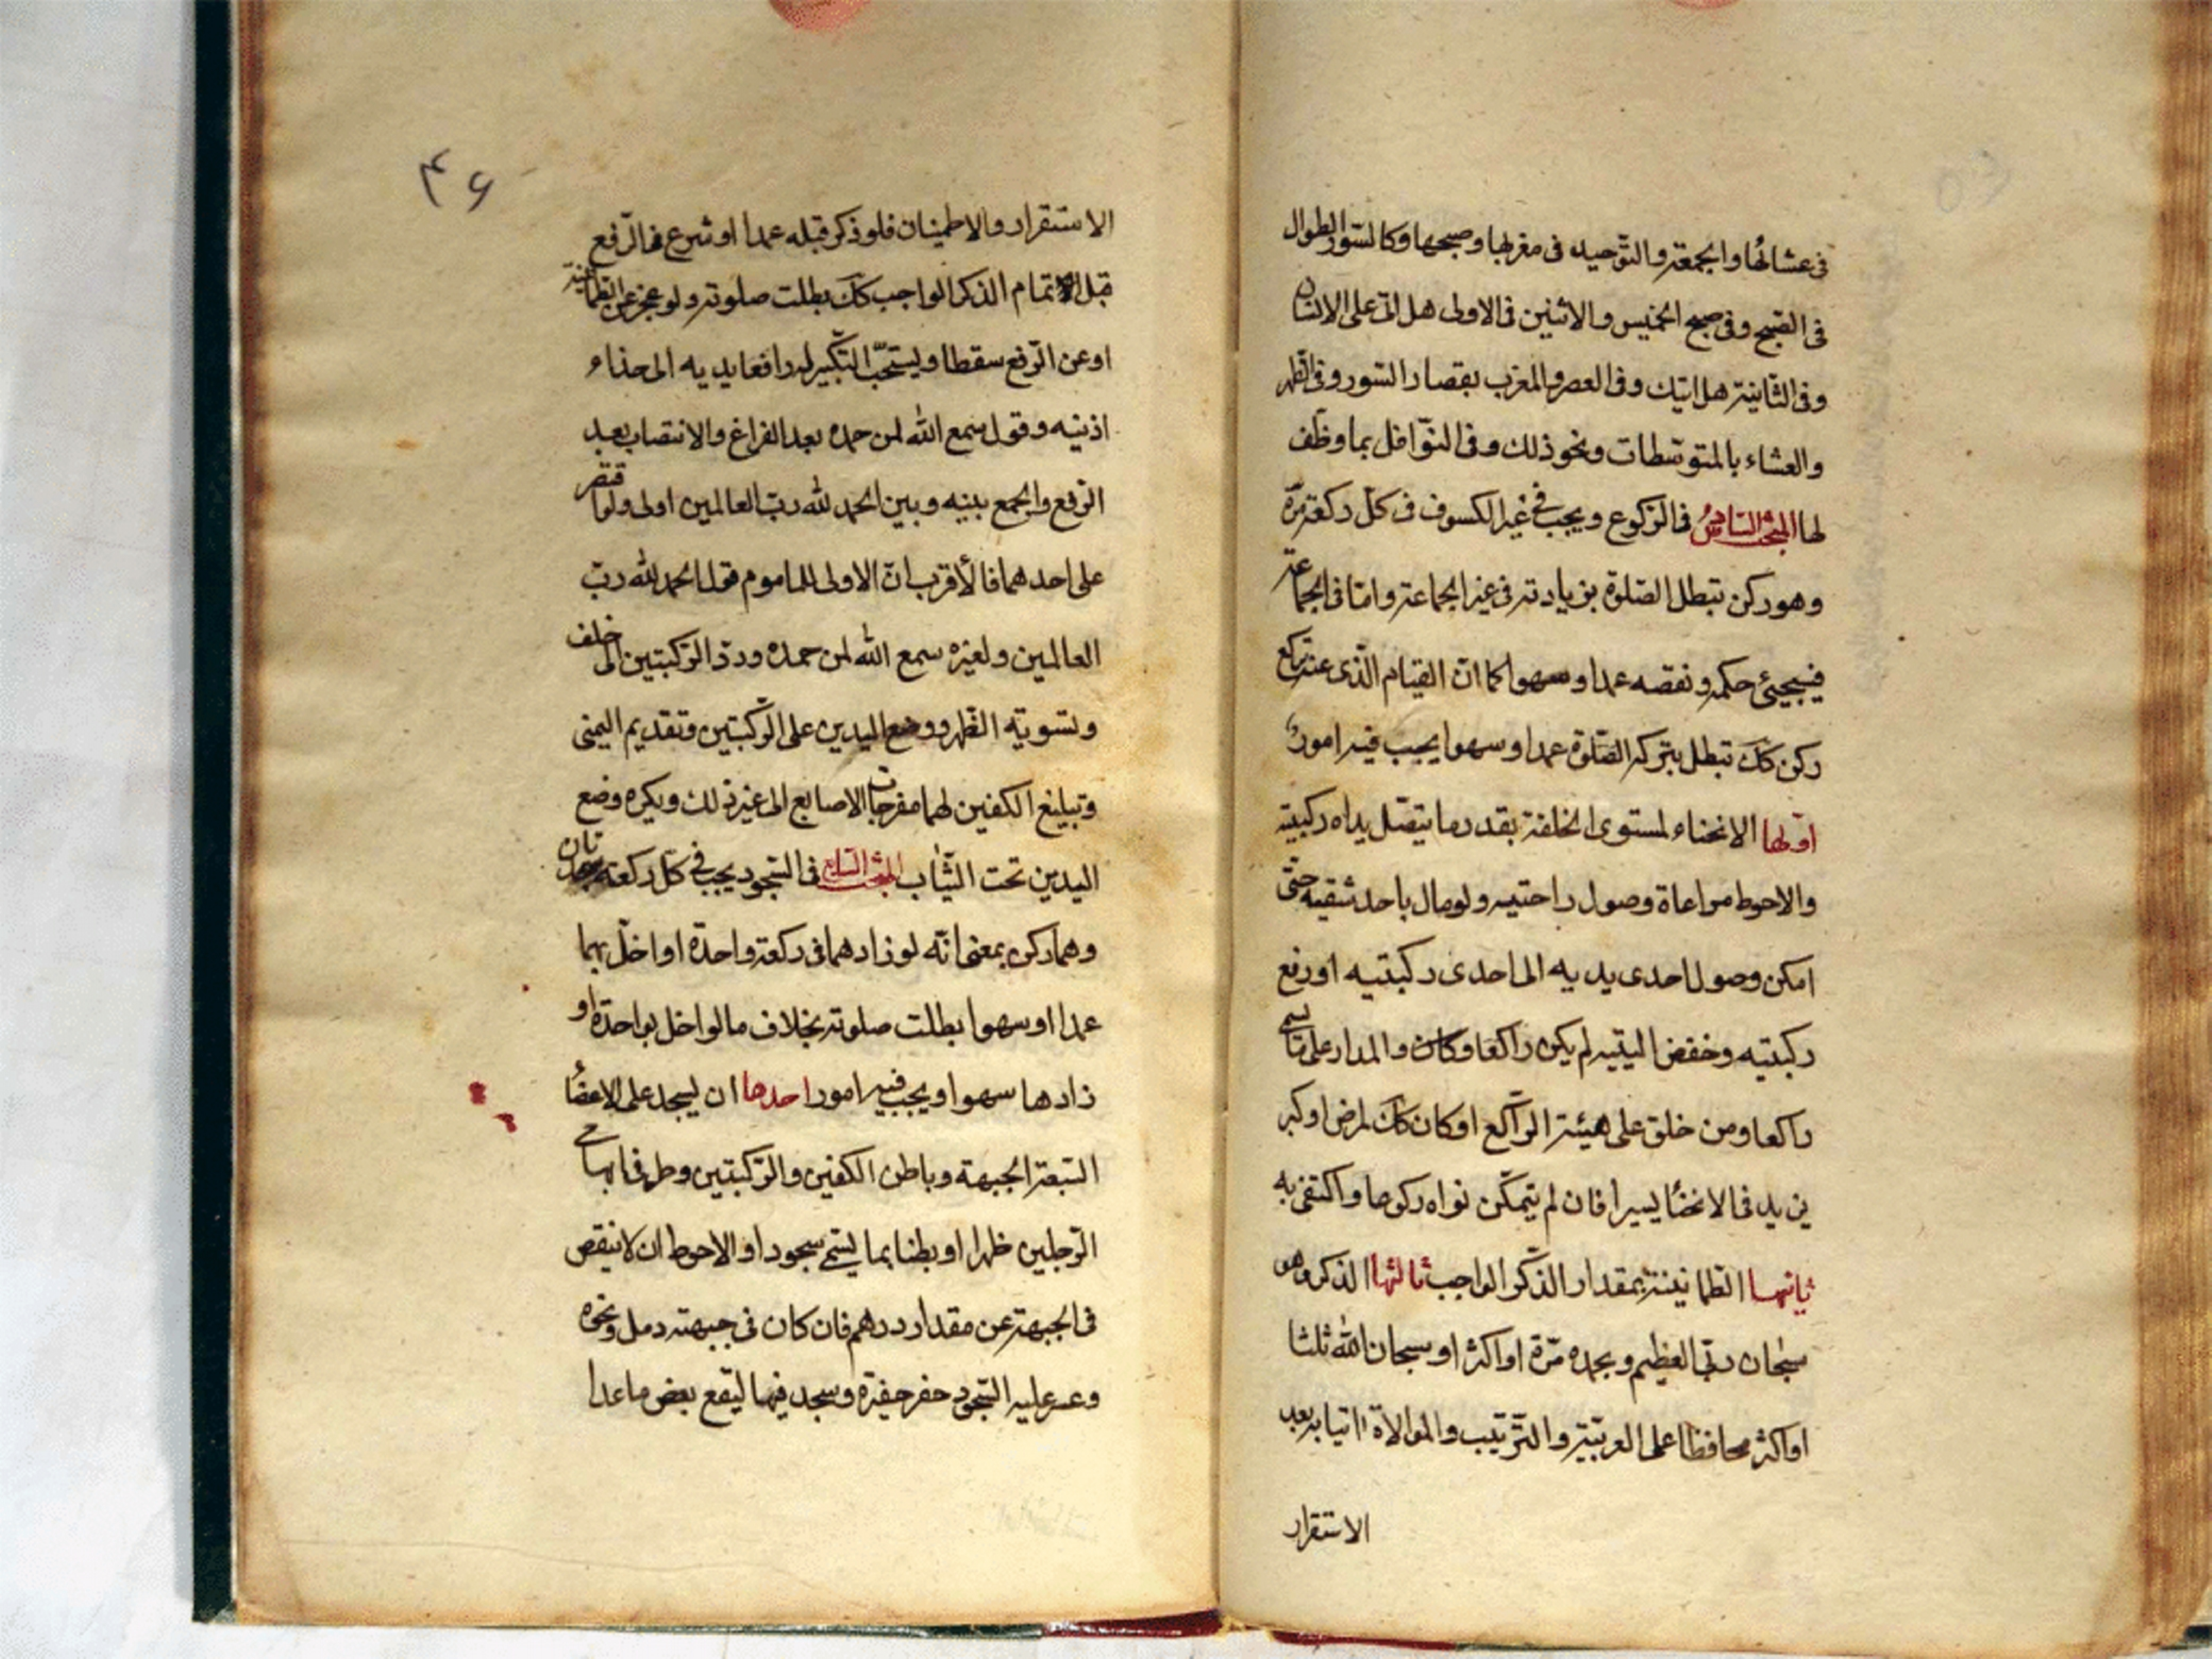 فى عشائها والجمعة والتوحيد فى مغربها وصبحها وكالسور الطوال
فى الصبح وفى صبح الخميس والاثنين فى الاولى هل اتى على الانسان
وفى الثانية هل اتيك وفى العصر والمغرب بقصار السور وفى الظهر
والعشاء بالمتوسطات ونحو ذلك وفى النوافل بما وظف
لها المبحث السادس فى الركوع ويجب فى غير الكسوف فى كل ركعة مرة
وهو ركن تبطل الصلوة بزيادته فى غير الجماعة واما فى الجماعة
فيجيئ حكمه ونقصه عمدا وسهوا كما ان القيام الذى عنه يركع
ركن كك تبطل بتركه الصلوة عمدا وسهوا يجب فيه امور
اولها الانحناء لمستوى الخلقة بقدر ما يتصل يداه ركبتيه
والاحوط مراعاة وصول راحتيه ولو مال باحد شقيه حتى
امكن وصول احدى يديه الى احدى ركبتيه او رفع
ركبتيه وخفض اليتيه لم يكن راكعا وكان والمدار على
راكعا ومن خلق على هيئة الراكع او كان كك لمرض او كبر
يزيد فى الانحناء يسيرا فان لم يتمكن نواه ركوعا واكتفى به
ثانيها الطمانينة بمقدار الذكر الواجب ثالثها الذكر وهو
سبحان ربى العظيم وبحمده مرة او اكثر او سبحان الله ثلثا
او اكثر محافظا على العربية والترتيب والموالاة اتيا به بعد
الاستقرار
۴۶
الاستقرار والاطمينان فلو ذكر قبله عمدا او شرع فى الرفع
قبل اتمام الذكر الواجب كك بطلت صلوته ولو عجز عن الطمانينة
او عن الرفع سقطا ويستحب التكبير له رافعا يديه الى حذاء
اذنيه وقول سمع الله لمن حمده بعد الفراغ والانتصاب بعد
الرفع والجمع بينه وبين الحمد لله رب العالمين اولى ولو اقتصر
على احدهما فالأقرب ان الاولى للماموم قول الحمد لله رب
العالمين ولغيره سمع الله لمن حمده ورد الركبتين الى خلف
وتسوية الظهر ووضع اليدين على الركبتين وتقديم اليمنى
وتبليغ الكفين لهما مفرجات الاصابع الى غير ذلك ويكره وضع
اليدين تحت الثياب المبحث السابع فى السجود يجب فى كل ركعة سجدتان
وهما ركن بمعنى انه لو زادهما فى ركعة واحدة او اخل بهما
عمدا او سهوا بطلت صلوته بخلاف ما لو اخل بواحدة او
زادها سهوا ويجب فيه امور احدها ان يسجد على الاعضاء
السبعة الجبهة وباطن الكفين والركبتين وطرفى ابهامى
الرجلين ظهرا او بطنا بما يسمى سجودا والاحوط ان لا ينقص
فى الجبهة عن مقدار درهم فان كان فى جبهته دمل ونحوه
وعسر عليه السجود حفر حفيرة وسجد فيها ليقع بعض ما عدا